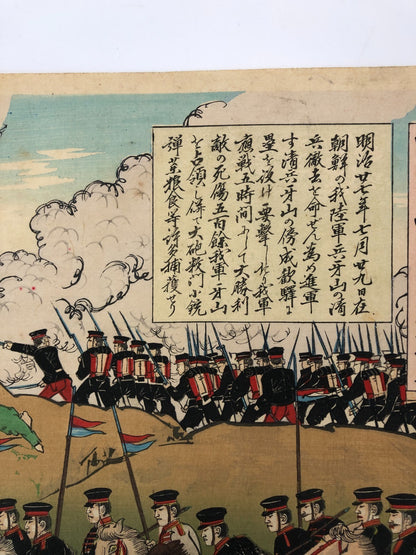 明治廿七年七月廿九日在
朝鮮の我陸軍ハ牙山の清
兵撤去を命せん為め進軍
す清兵牙山の傍成歓驛に
塁を设け要撃したれ我軍
應戦五時間にして大勝利
敵の死傷五百餘我軍ハ牙山
を占領し併て大砲数門小銃
弾薬粮食等許多捕獲せり